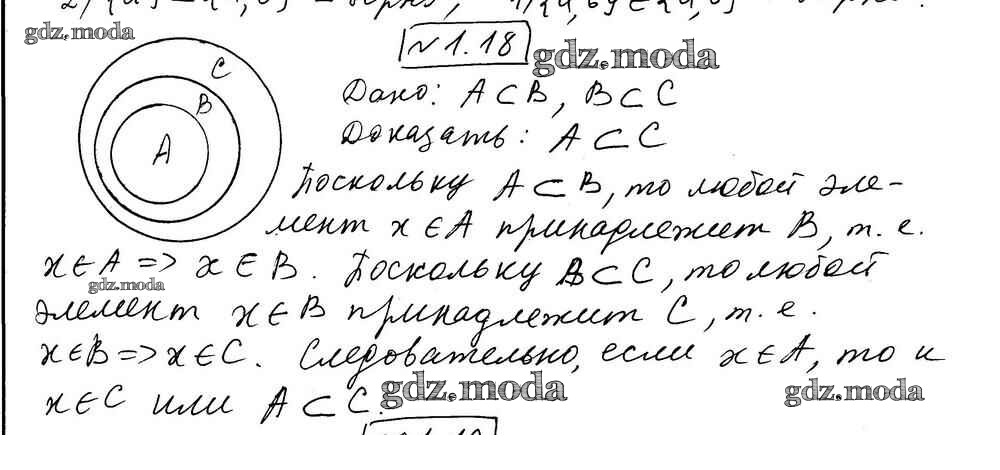 gdz.moda
№1.18
gdz.moda
C
B
A
Дано: A⊂B, B⊂C
Доказать: A⊂C
Поскольку A⊂B, то любой эле-
мент x∈A принадлежит B, т.е.
x∈A => x∈B. Поскольку B⊂C, то любой
gdz.moda
элемент x∈B принадлежит C, т.е.
x∈B=>x∈C. Следовательно, если x∈A, то и
x∈C или A⊂C.
gdz.moda
gdz.moda